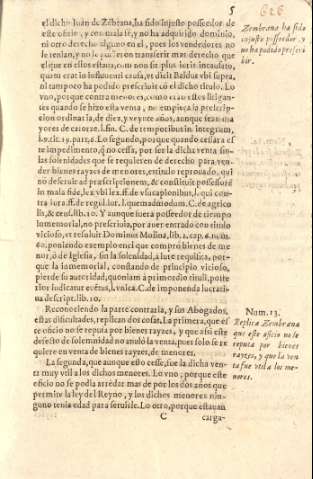 5
626
el dicho Iuan de Zẽbrana, ha sido injusto posseedor de
este oficio, y con mala fè, y no ha adquirido dominio,
ni otro derecho alguno en el, pues los vendedores no
le tenian, y no pudieron transferir mas derecho que
el que en ellos estava, o. m non sit plus iuris incausato,
quam erat in influenti causa, vt dicit Baldus vbi supra,
ni tampoco ha podido prescriuir cõ el dicho titulo. Lo
vno, porque contra menores, como eran estos litigan-
tes quando se hizo esta venta, no empieça la prescrip-
cion ordinaria, de diez, y veynte años, aunque sean ma
yores de catorze. l. fin. C. de temporibus in integrum,
Lo segundo, porque quando cessara es
te impedimento, q̃ no cessa, por ser la dicha venta sin
las solenidades que se requieren de derecho para ven-
der bienes rayzes de menores, es titulo reprouado, qui
nõ deseruit ad praescriptionem, & constituit possessorẽ
in mala fide, lex vbi lex. ff. de vsucapionibus, l. qui con-
tra iura. ff. de regul. iur. l. quemadmodum. C. de agrico
lis, & cens. lib. 10. Y aunque fuera posseedor de tiempo
inmemorial, no prescriuio, por auer entrado con titulo
vicioso, vt resoluit Dominus Molina, lib. 2. cap. 6. num.
60. poniendo exemplo en el que comprò bienes de me-
nor, ò de Iglesia, sin la solenidad, à iure requisita, por-
que la inmemorial, constando de principio vicioso,
pierde su autoridad, quoniam à primordio tituli, poste
rior iudicatur euẽtus, l. vnica. C. de imponenda lucrati-
ua descript. lib. 10.
Reconociendo la parte contraria, y sus Abogados,
estas dificultades, replican dos cosas. La primera, que es
te oficio no se reputa por bienes rayzes, y que assi este
defecto de solemnidad no anulò la venta, pues solo se re
quiere en venta de bienes rayzes, de menores.
La segunda, que aunque esto cesse, fue la dicha ven-
ta muy vtil a los dichos menores. Lo vno, porque este
oficio no se podia arrẽdar mas de por los dos años que
permite la ley del Reyno, y los dichos menores nin-
guno tenia edad para seruirle. Lo otro, porque estauan
C
carga-
Zembrana ha sido
injusto posseedor, y
no ha podido prescri
bir.
Num. 13.
Replica Zembrana
que este oficio no se
reputa por bienes
rayzes, y que la ven
ta fue vtil a los me-
nores.